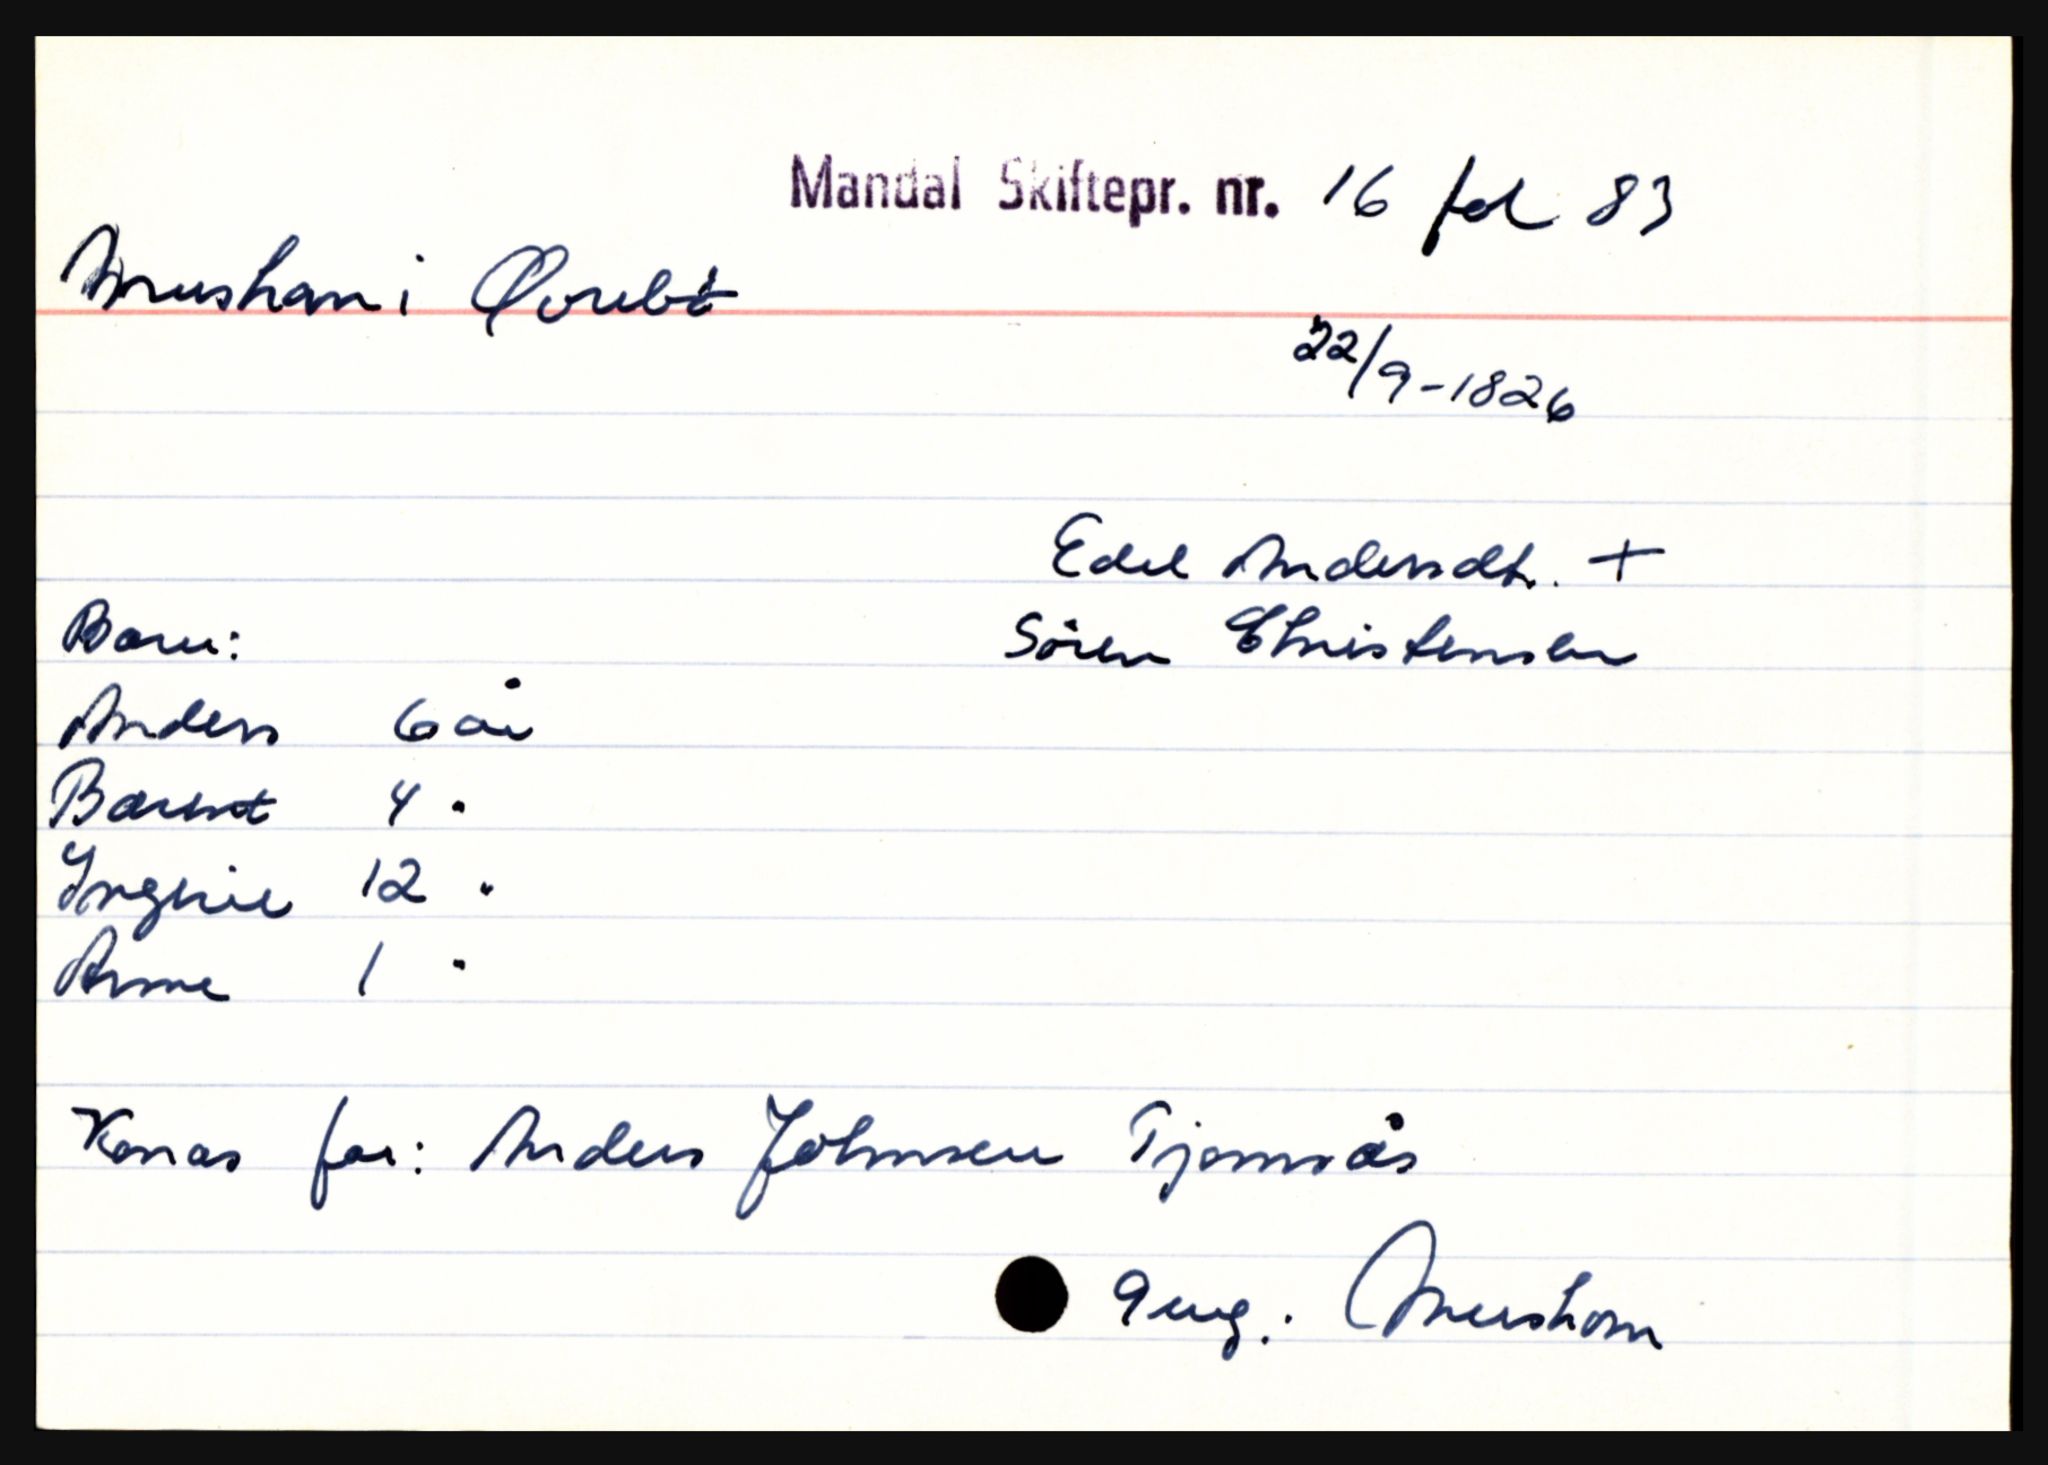 Mandal Skiftepr. nr. 16 fol 83
Mushom i Øvrebø
22/9-1826
Edel Andersdt. +
Barn: Sören Christensen
Anders 6 år
Barent 4 "
Ingerie 12 "
Anne 1 "
Konas far: Anders Johnsen Tjomsås
gnr.: Mushom